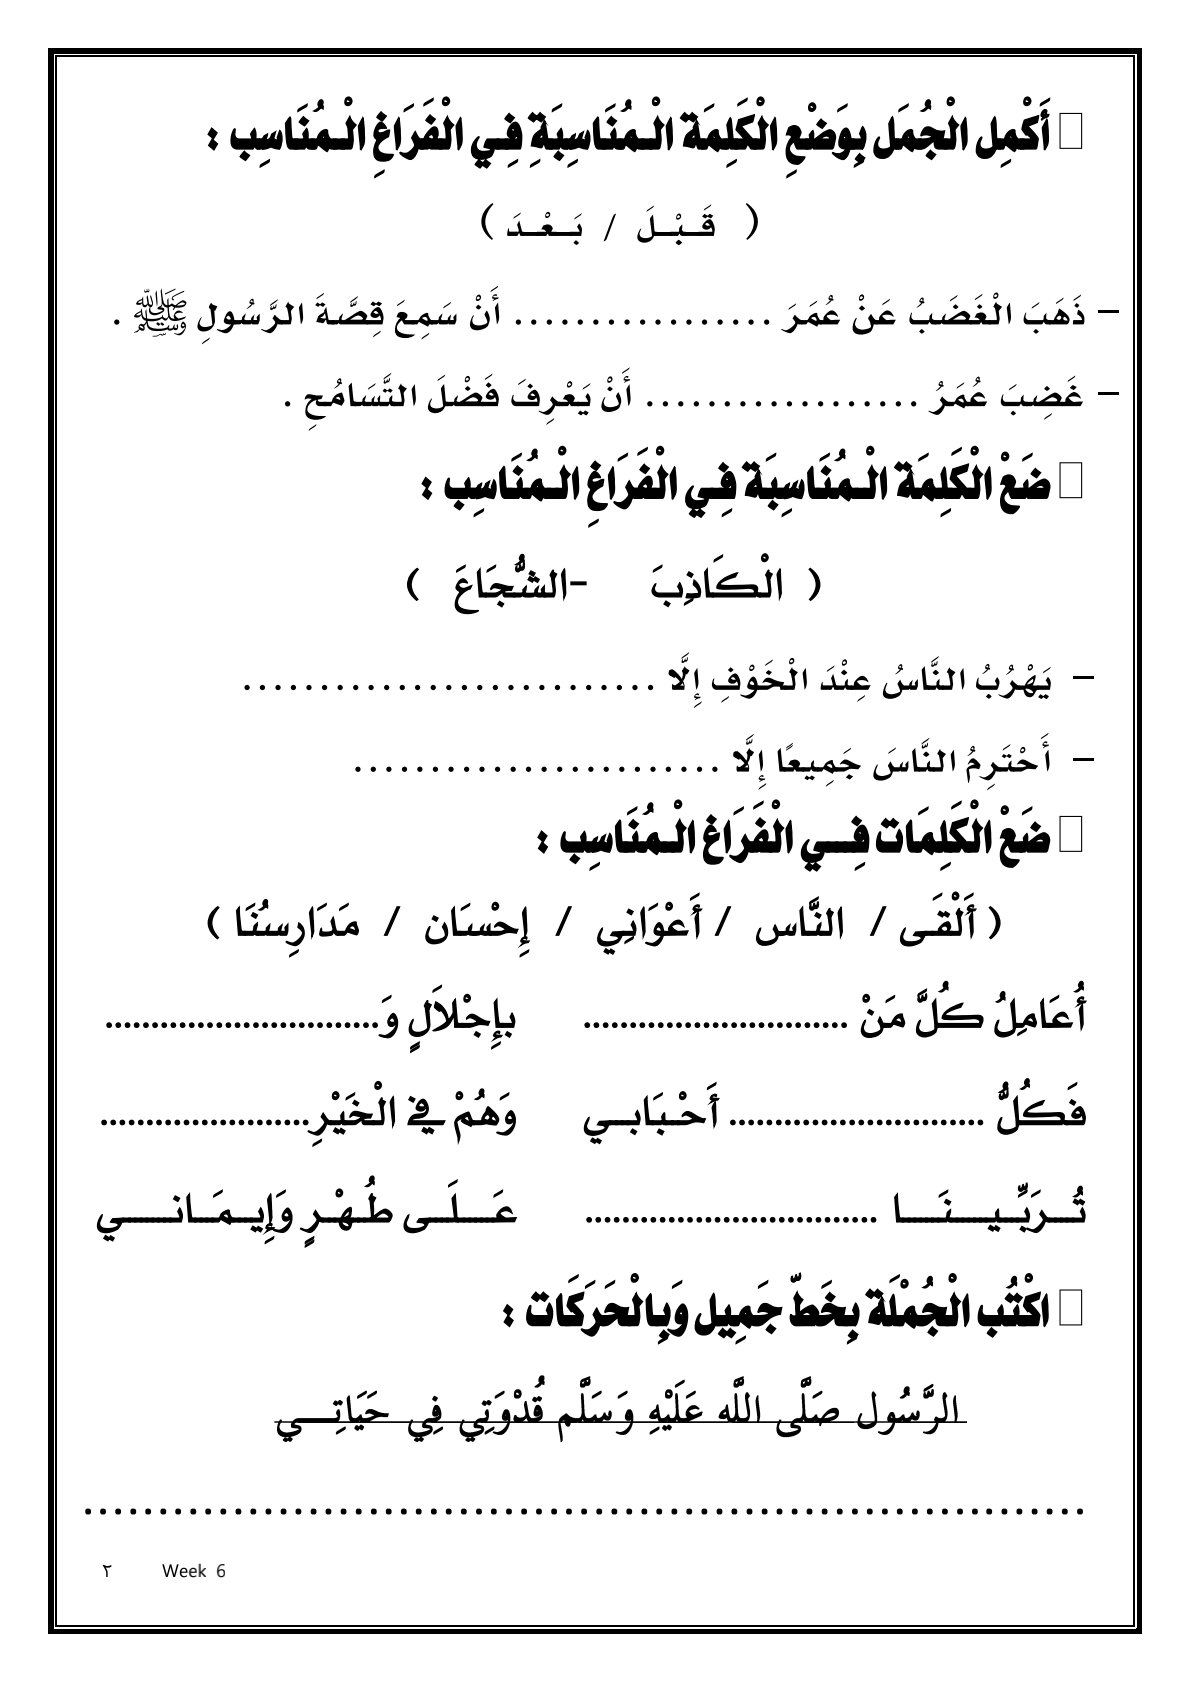 أَكْمِل الْجُمَل بِوَضْعِ الْكَلِمَة الْـمُنَاسِبَةِ فِـي الْفَرَاغِ الْـمُنَاسِب :
( قَــبْــلَ / بَــعْــدَ )
– ذَهَبَ الْغَضَبُ عَنْ عُمَرَ ................. أَنْ سَمِعَ قِصَّةَ الرَّسُولِ ﷺ .
– غَضِبَ عُمَرُ .................. أَنْ يَعْرِفَ فَضْلَ التَّسَامُحِ .
ضَعْ الْكَلِمَة الْـمُنَاسِبَة فِـي الْفَرَاغِ الْـمُنَاسِب :
( الْكَاذِبَ -الشُّجَاعَ )
– يَهْرُبُ النَّاسُ عِنْدَ الْخَوْفِ إِلَّا ...........................
– أَحْتَرِمُ النَّاسَ جَمِيعًا إِلَّا ........................
ضَعْ الْكَلِمَات فِـــي الْفَرَاغ الْـمُنَاسِب :
( أَلْقَـى / النَّاس / أَعْوَانِي / إِحْسَان / مَدَارِسُنَا )
أُعَامِلُ كُلَّ مَنْ ............................. بإِجْلاَلٍ وَ..............................
فَكُلُّ ............................ أَحْـبَابـــي وَهُمْ فِي الْخَيْرِ.......................
تُـــرَبِّــيـــنَـــا ................................ عَـــلَـــى طُــهْــرٍ وَإِيــمَــانــــــي
اكْتُب الْجُمْلَة بِخَطّ جَمِيل وَبِالْحَرَكَات :
الرَّسُول صَلَّى اللَّه عَلَيْهِ وَسَلَّم قُدْوَتِي فِي حَيَاتِـــــي
....................................................................
٢ Week 6